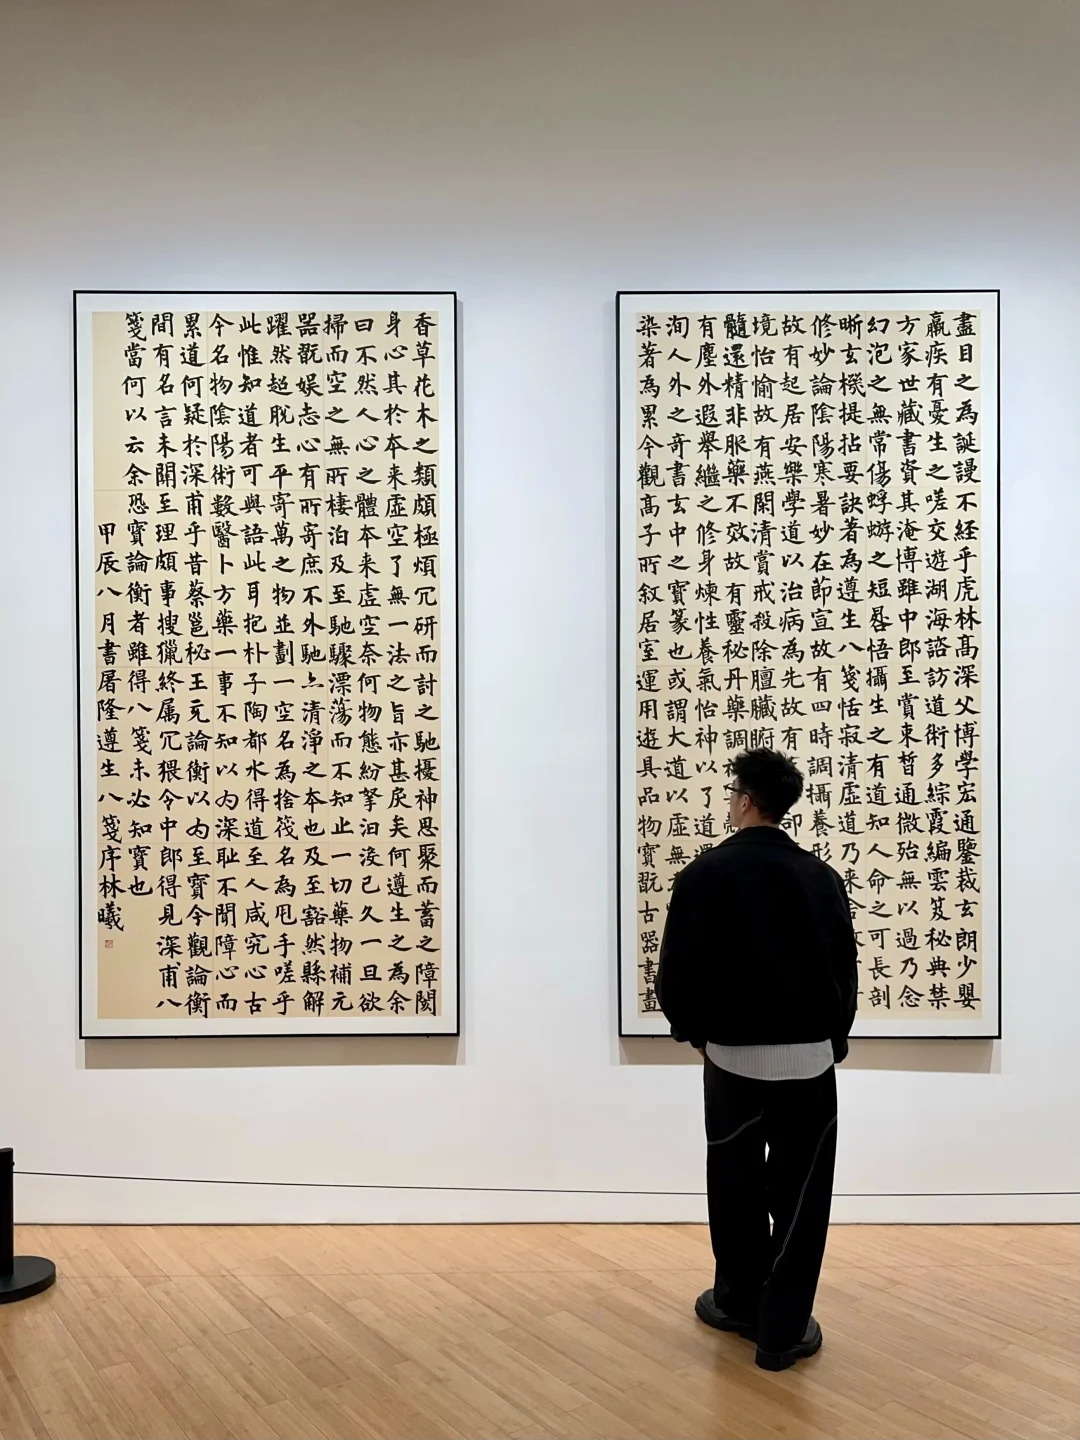 盡目之為誕謾不經乎虎林髙深父博學宏通鑒裁玄朗少嬰
羸疾有憂生之嗟交遊湖海諮訪道術多綜霞編雲笈秘典禁
方家世藏書資其淹博雖中郎至賞束晳通微殆無以過乃念
幻泡之無常傷蜉蝣之短晷悟攝生之有道知人命之可長剖
晰玄機提拈要訣著為遵生八箋恬寂清虛道乃来舍故
修妙論陰陽寒暑妙在節宣故有四時調攝養形
故有起居安樂學道以治病為先故有卻
境怡愉故有燕閑清賞戒殺除膻臟腑
髓還精非服藥不效故有靈秘丹藥調神
有塵外遐舉繼之修身煉性養氣怡神以了道還
洵人外之奇書玄中之寶篆也或謂大道以虛無
染著為累今觀髙子所敘居室運用遊具品物寶翫古器書畫
香草花木之類頗極煩冗研而討之馳擾神思聚而蓄之障閡
身心其於本来虛空了無一法之旨亦甚戾矣何遵生之為余
曰不然人心之體本来虛空奈何物態紛拏汩沒已久一旦欲
掃而空之無所棲泊及至馳驟漂蕩而不知止一切藥物補元
器翫娛志心有所寄庶不外馳亦清淨之本也及至豁然縣解
躍然超脫生平寄萬之物並劃一空名為捨筏名為甩手嗟乎
此惟知道者可與語此耳抱朴子陶都水得道至人咸究心古
今名物陰陽術數醫卜方藥一事不知以为深耻不聞障心而
累道何疑於深甫乎昔蔡邕秘王充論衡以为至寶今觀論衡
間有名言未關至理頗事搜獵終属冗猥令中郎得見深甫八
箋當何以云余恐寶論衡者雖得八箋未必知寶也
甲辰八月書屠隆遵生八箋序林曦